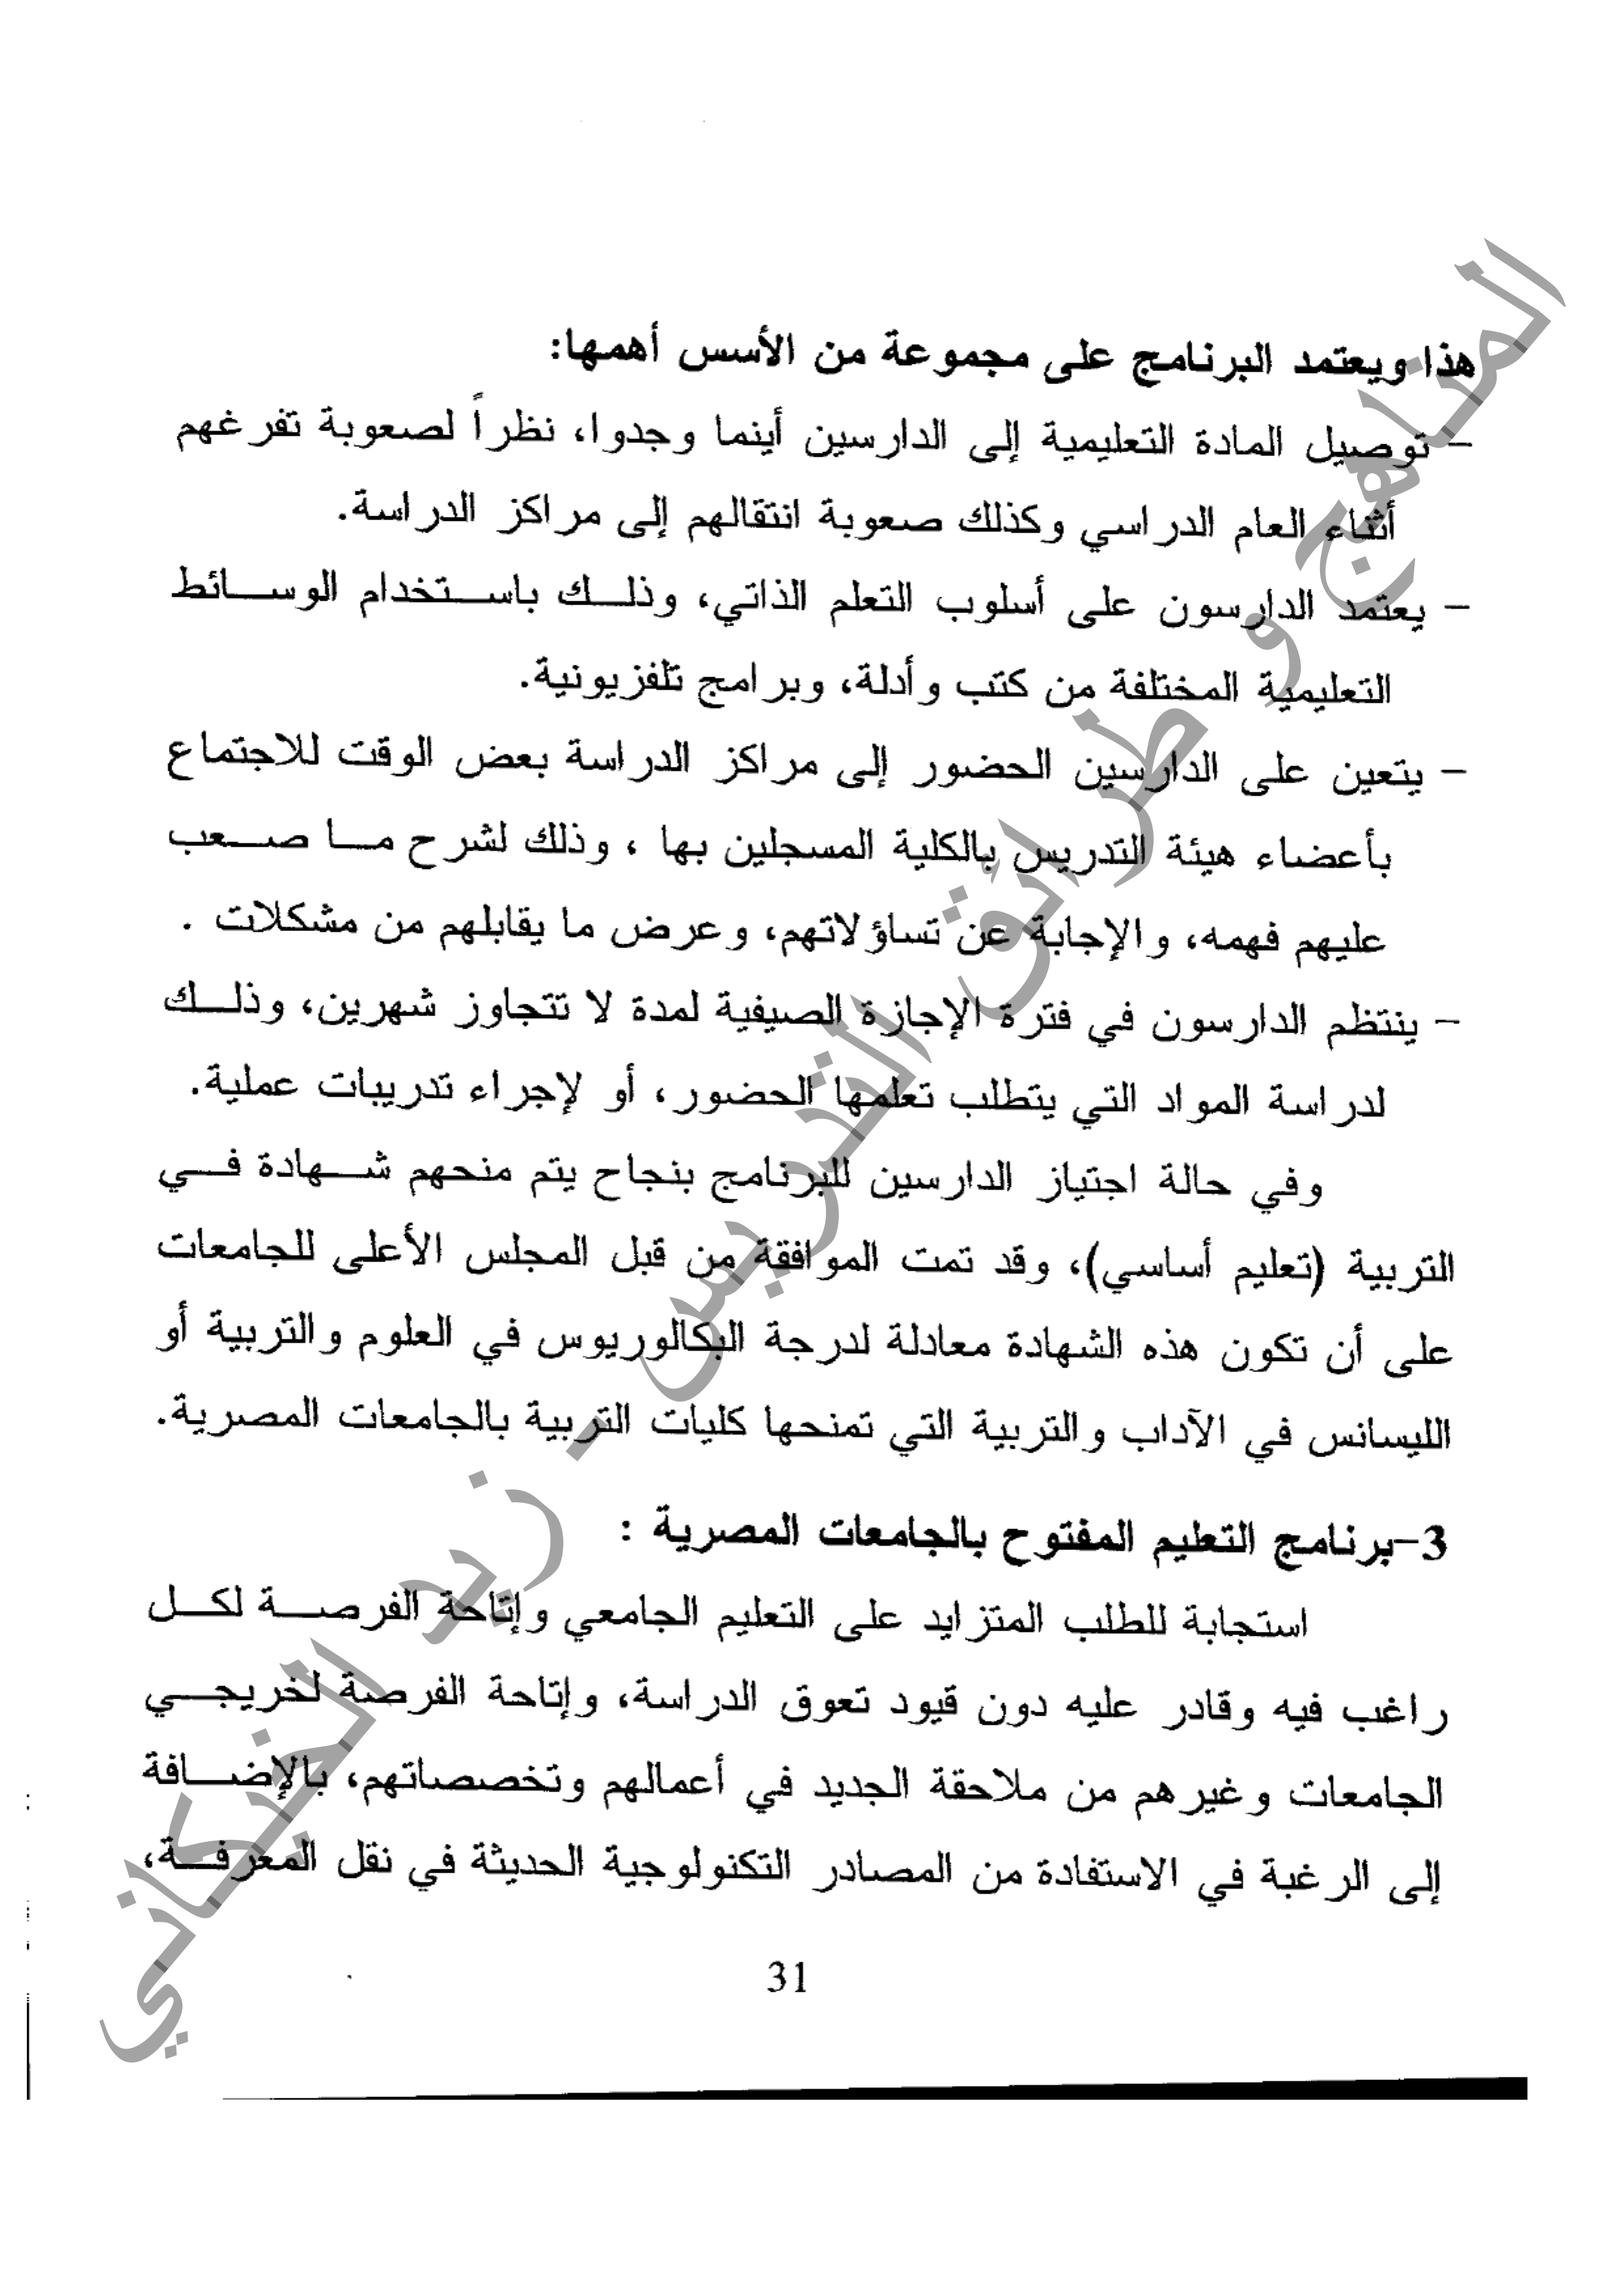 هذا ويعتمد البرنامج على مجموعة من الأسس أهمها:
- توصيل المادة التعليمية إلى الدارسين أينما وجدوا، نظراً لصعوبة تفرغهم
أثناء العام الدراسي وكذلك صعوبة انتقالهم إلى مراكز الدراسة.
- يعتمد الدارسون على أسلوب التعلم الذاتي، وذلك باستخدام الوسائط
التعليمية المختلفة من كتب وأدلة، وبرامج تلفزيونية.
- يتعين على الدارسين الحضور إلى مراكز الدراسة بعض الوقت للاجتماع
بأعضاء هيئة التدريس بالكلية المسجلين بها ، وذلك لشرح ما صعب
عليهم فهمه، والإجابة عن تساؤلاتهم، وعرض ما يقابلهم من مشكلات .
- ينتظم الدارسون في فترة الإجازة الصيفية لمدة لا تتجاوز شهرين، وذلك
لدراسة المواد التي يتطلب تعلمها الحضور، أو لإجراء تدريبات عملية.
وفي حالة اجتياز الدارسين للبرنامج بنجاح يتم منحهم شهادة في
التربية (تعليم أساسي)، وقد تمت الموافقة من قبل المجلس الأعلى للجامعات
على أن تكون هذه الشهادة معادلة لدرجة البكالوريوس في العلوم والتربية أو
الليسانس في الآداب والتربية التي تمنحها كليات التربية بالجامعات المصرية.
3-برنامج التعليم المفتوح بالجامعات المصرية :
استجابة للطلب المتزايد على التعليم الجامعي وإتاحة الفرصة لكل
راغب فيه وقادر عليه دون قيود تعوق الدراسة، وإتاحة الفرصة لخريجي
الجامعات وغيرهم من ملاحقة الجديد في أعمالهم وتخصصاتهم، بالإضافة
إلى الرغبة في الاستفادة من المصادر التكنولوجية الحديثة في نقل المعرفة،
31
المناهج و طرائق التدريس - زيد الخيكاني